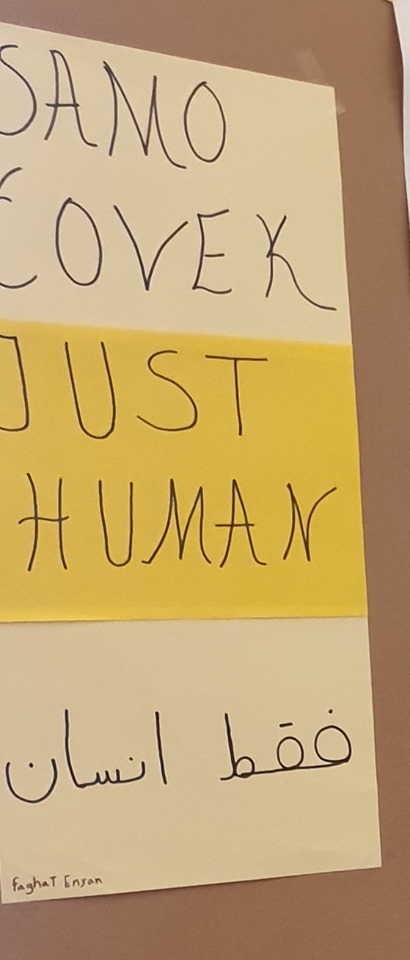 SAMO
ČOVEK
JUST
HUMAN
فقط انسان
Faghat Ensan